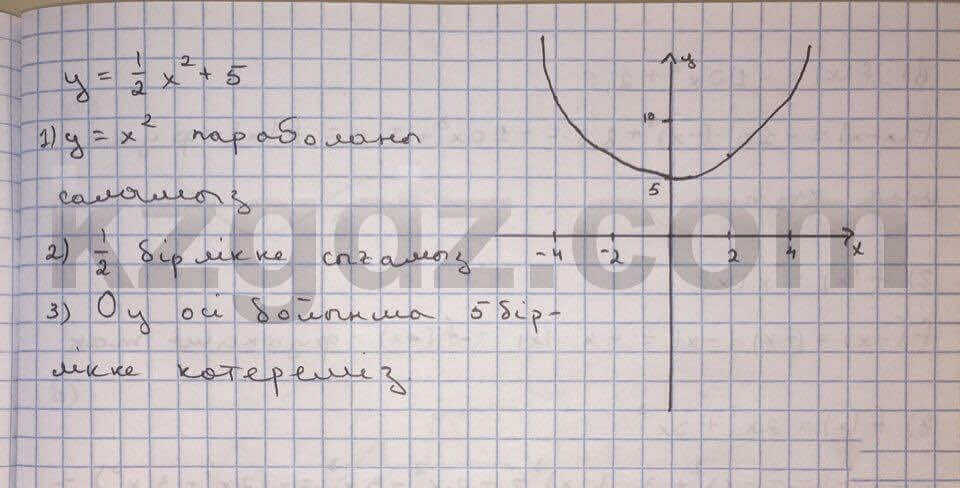 y = 1/2 x² + 5
1) y = x² параболаны
саламыз
2) 1/2 бірлікке сығамыз
3) Oy осі бойынша 5 бір-
лікке көтереміз
y
10
5
-4 -2 2 4 x
kzgdz.com